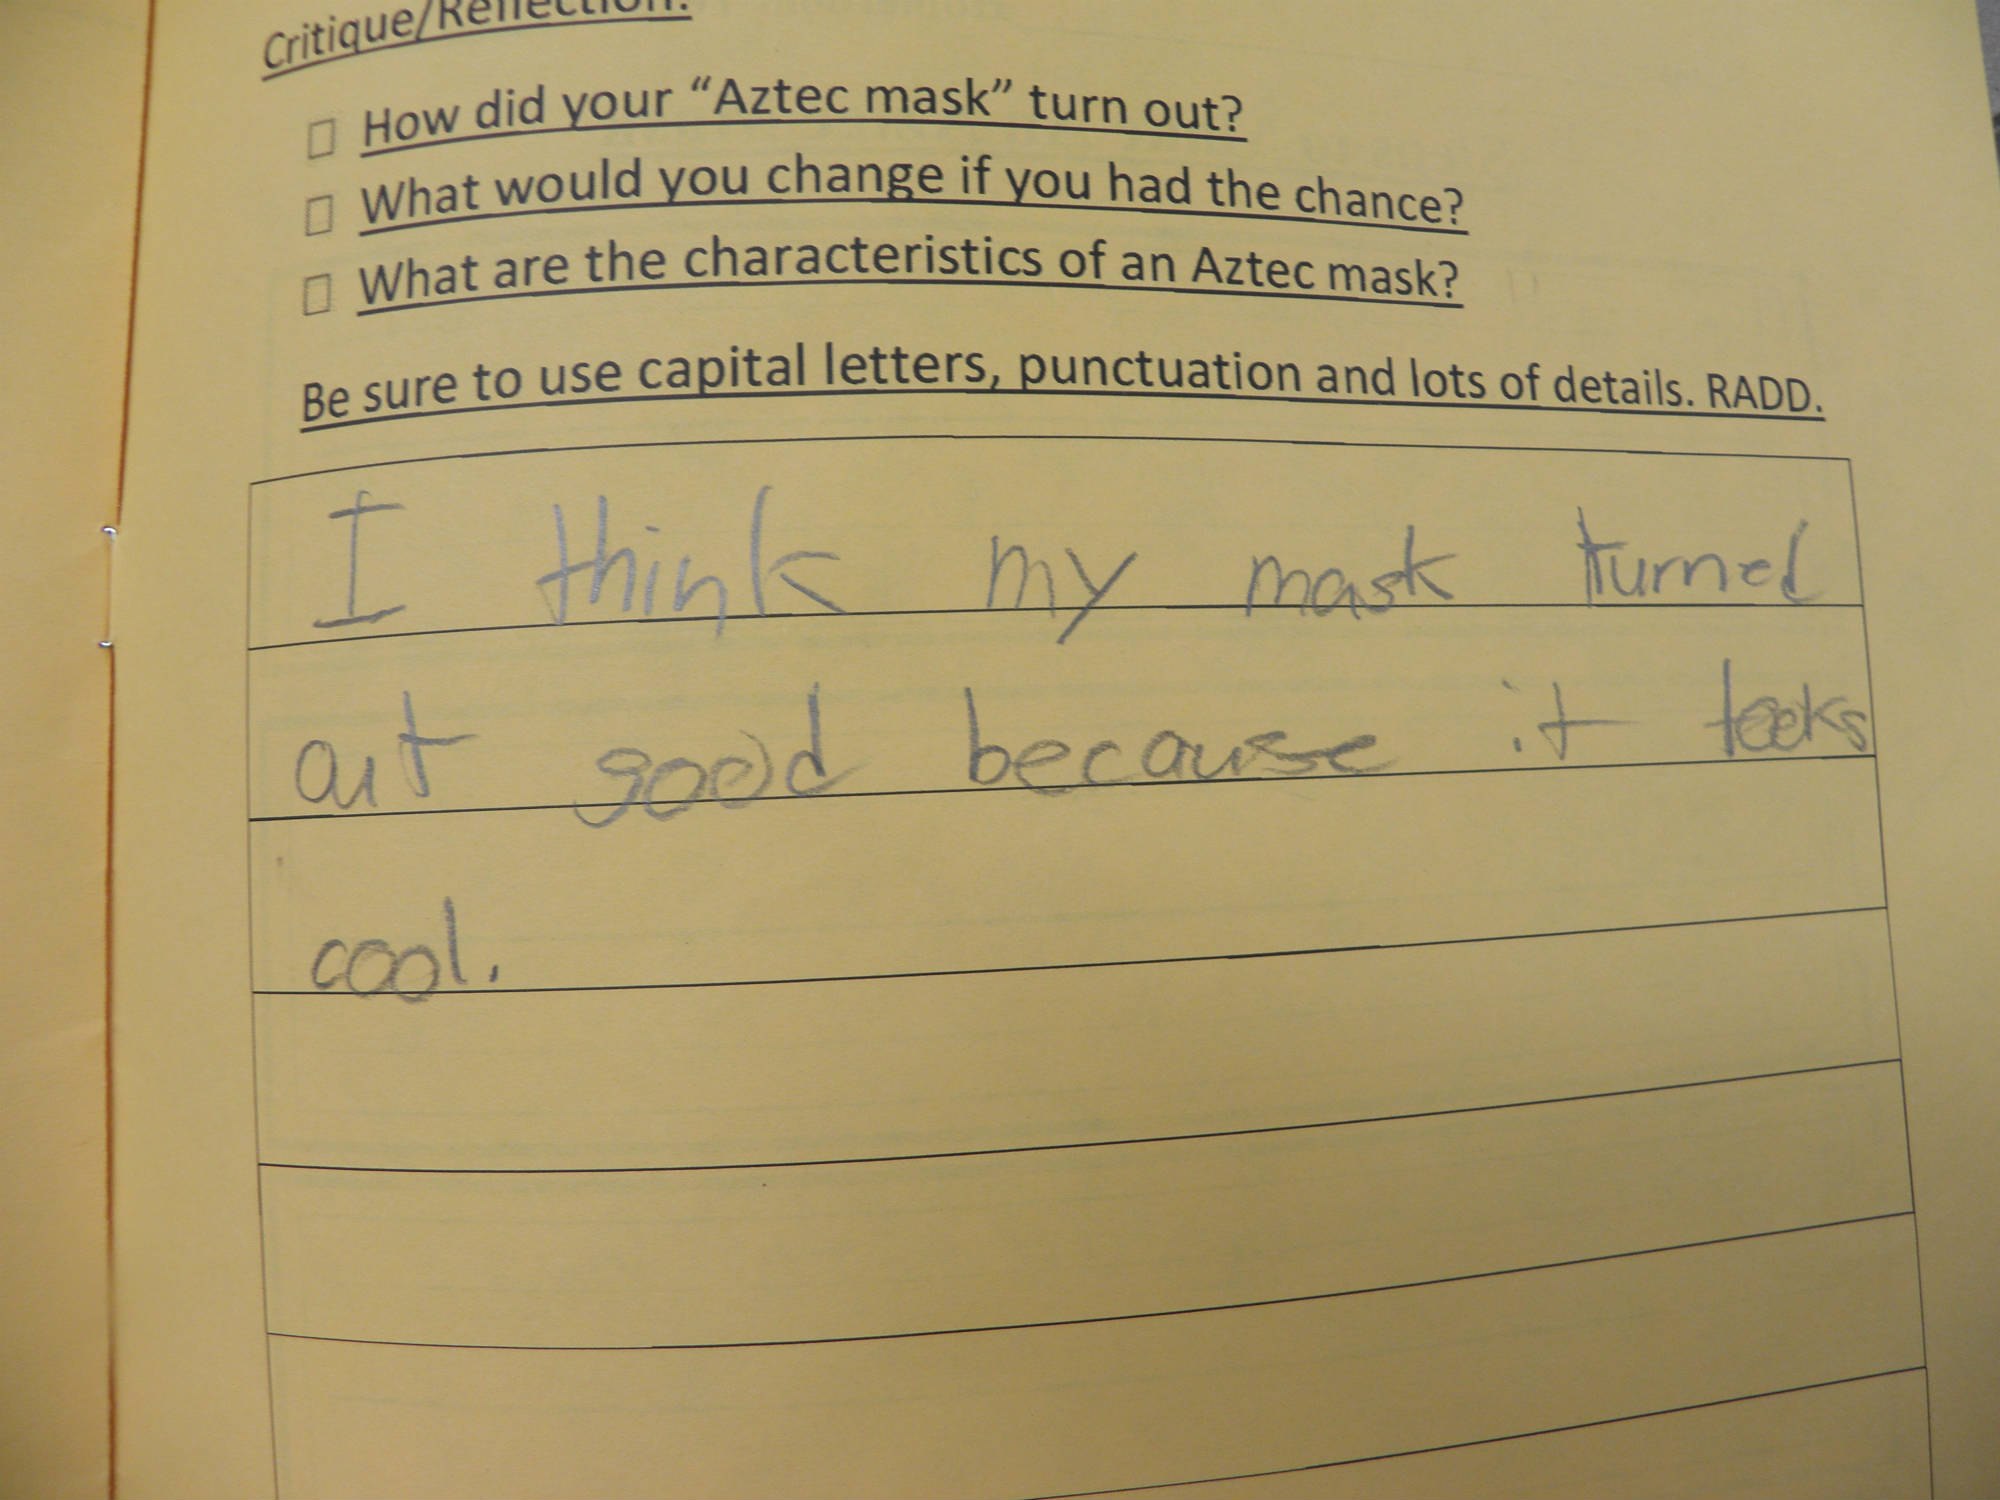 Critique/Reflection:
How did your “Aztec mask” turn out?
What would you change if you had the chance?
What are the characteristics of an Aztec mask?
Be sure to use capital letters, punctuation and lots of details. RADD.
I think my mask turned
out good because it looks
cool.